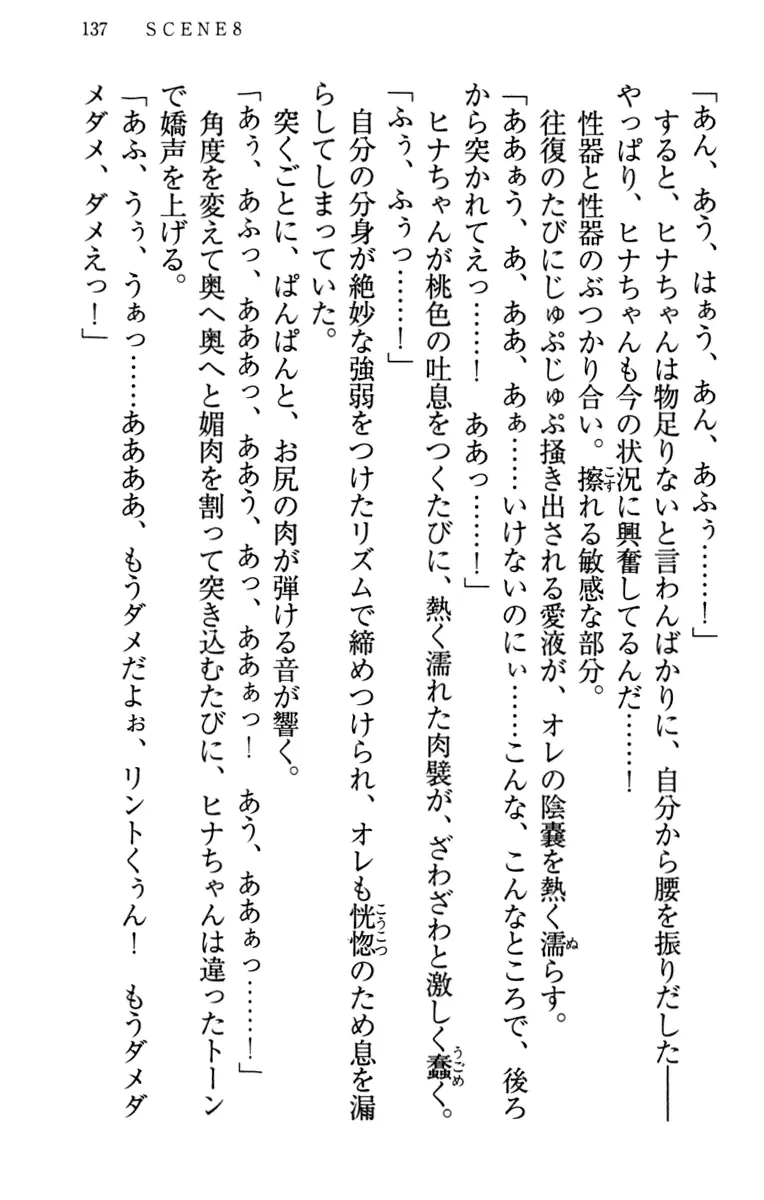 137 SCENE8
「あん、あう、はぁう、あん、あふぅ……！」
すると、ヒナちゃんは物足りないと言わんばかりに、自分から腰を振りだした――
やっぱり、ヒナちゃんも今の状況に興奮してるんだ……！
性器と性器のぶつかり合い。擦れる敏感な部分。
往復のたびにじゅぷじゅぷ掻き出される愛液が、オレの陰嚢を熱く濡らす。
「ああぁう、あ、ああ、あぁ……いけないのにぃ……こんな、こんなところで、後ろ
から突かれてえっ……！　ああっ……！」
ヒナちゃんが桃色の吐息をつくたびに、熱く濡れた肉襞が、ざわざわと激しく蠢く。
「ふぅ、ふぅっ……！」
自分の分身が絶妙な強弱をつけたリズムで締めつけられ、オレも恍惚のため息を漏
らしてしまっていた。
突くごとに、ぱんぱんと、お尻の肉が弾ける音が響く。
「あぅ、あふっ、あああっ、ああう、あっ、ああぁっ！　あう、ああぁっ……！」
角度を変えて奥へ奥へと媚肉を割って突き込むたびに、ヒナちゃんは違ったトーン
で嬌声を上げる。
「あふ、うぅ、うぁっ……ああああ、もうダメだよぉ、リントくぅん！　もうダメダ
メダメ、ダメえっ！」